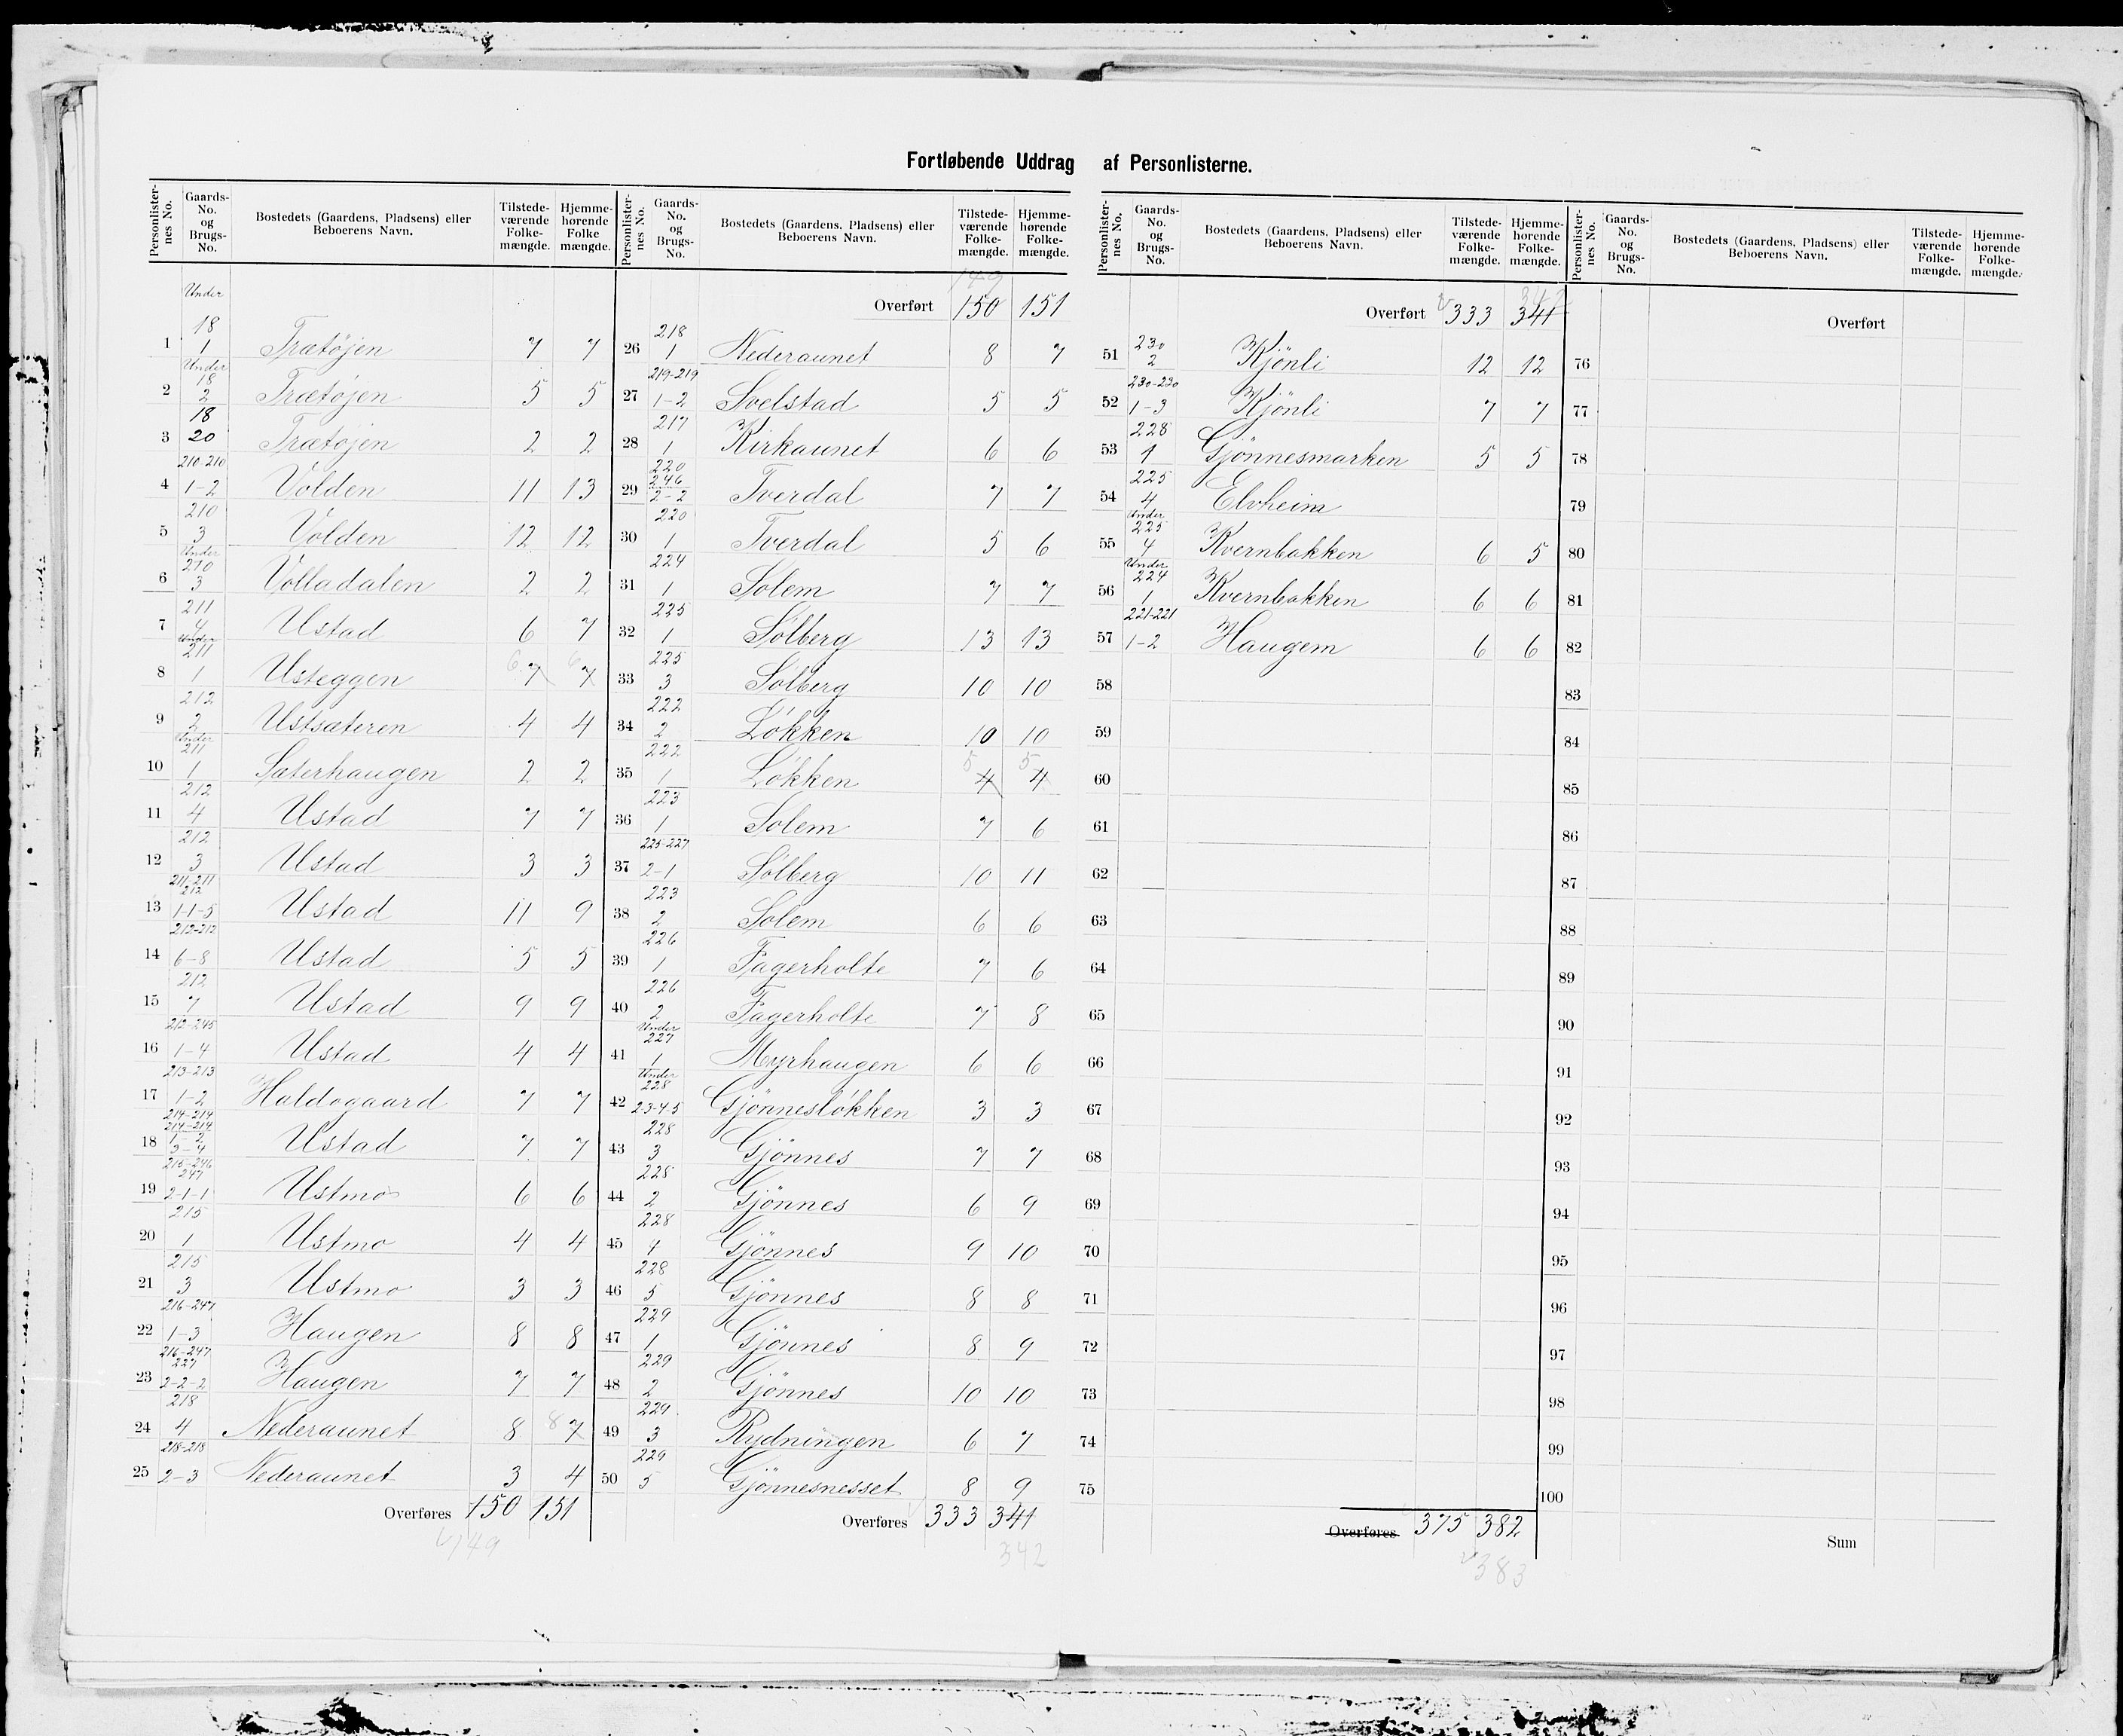 Fortløbende Uddrag af Personlisterne.
Personlister-nes No. | Gaards-No. og Brugs-No. | Bostedets (Gaardens, Pladsens) eller Beboerens Navn. | Tilstede-værende Folke-mængde. | Hjemme-hørende Folke mængde.
1 | Under 18 1 | Trætøjen | 7 | 7
2 | Under 18 2 | Trætøjen | 5 | 5
3 | 18 20 | Trætøjen | 2 | 2
4 | 210-210 1-2 | Volden | 11 | 13
5 | 210 3 | Volden | 12 | 12
6 | Under 210 3 | Volladalen | 2 | 2
7 | 211 4 | Ustad | 6 | 7
8 | Under 211 1 | Usteggen | 6 7 | 6 7
9 | 212 2 | Ustsæteren | 4 | 4
10 | Under 211 1 | Sæterhaugen | 2 | 2
11 | 212 4 | Ustad | 7 | 7
12 | 212 3 | Ustad | 3 | 3
13 | 211-211 212 1-1-5 | Ustad | 11 | 9
14 | 212-212 6-8 | Ustad | 5 | 5
15 | 212 7 | Ustad | 9 | 9
16 | 212-245 1-4 | Ustad | 4 | 4
17 | 213-213 1-2 | Haldogaard | 7 | 7
18 | 214-214 214-214 1-2 3-4 | Ustad | 7 | 7
19 | 215-246 247 2-1-1 | Ustmo | 6 | 6
20 | 215 1 | Ustmo | 4 | 4
21 | 215 3 | Ustmo | 3 | 3
22 | 216-247 1-3 | Haugen | 8 | 8
23 | 216-247 227 2-2-2 | Haugen | 7 | 7
24 | 218 4 | Nederaunet | 8 | 8 7
25 | 218-218 2-3 | Nederaunet | 3 | 4
Overføres 150 151
149
Personlister-nes No. | Gaards-No. og Brugs-No. | Bostedets (Gaardens, Pladsens) eller Beboerens Navn. | Tilstede-værende Folke-mængde. | Hjemme-hørende Folke-mængde.
149
Overført 150 151
26 | 218 1 | Nederaunet | 8 | 7
27 | 219-219 1-2 | Svelstad | 5 | 5
28 | 217 1 | Kirkaunet | 6 | 6
29 | 220 246 2-2 | Tverdal | 7 | 7
30 | 220 1 | Tverdal | 5 | 6
31 | 224 1 | Solem | 7 | 7
32 | 225 1 | Sølberg | 13 | 13
33 | 225 3 | Sølberg | 10 | 10
34 | 222 2 | Løkken | 10 | 10
35 | 222 1 | Løkken | 5 4 | 5 4
36 | 223 1 | Solem | 7 | 6
37 | 225-227 2-1 | Sølberg | 10 | 11
38 | 223 2 | Solem | 6 | 6
39 | 226 1 | Fagerholte | 7 | 6
40 | 226 2 | Fagerholte | 7 | 8
41 | Under 227 1 | Myrhaugen | 6 | 6
42 | Under 228 2-3-4-5 | Gjønnesløkken | 3 | 3
43 | 228 3 | Gjønnes | 7 | 7
44 | 228 2 | Gjønnes | 6 | 9
45 | 228 4 | Gjønnes | 9 | 10
46 | 228 5 | Gjønnes | 8 | 8
47 | 229 1 | Gjønnes | 8 | 9
48 | 229 2 | Gjønnes | 10 | 10
49 | 229 3 | Rydningen | 6 | 7
50 | 229 5 | Gjønnesnesset | 8 | 9
Overføres 333 341
342
Personlister-nes No. | Gaards-No. og Brugs-No. | Bostedets (Gaardens, Pladsens) eller Beboerens Navn. | Tilstede-værende Folke-mængde. | Hjemme-hørende Folke-mængde.
342
Overført 333 341
51 | 230 2 | Kjønli | 12 | 12
52 | 230-230 1-3 | Kjønli | 7 | 7
53 | 228 1 | Gjønnesmarken | 5 | 5
54 | 225 4 | Elvheim
55 | Under 225 4 | Kvernbakken | 6 | 5
56 | Under 224 1 | Kvernbakken | 6 | 6
57 | 221-221 1-2 | Haugem | 6 | 6
58
59
60
61
62
63
64
65
66
67
68
69
70
71
72
73
74
75
Overføres 375 382
383
Personlister-nes No. | Gaards-No. og Brugs-No. | Bostedets (Gaardens, Pladsens) eller Beboerens Navn. | Tilstede-værende Folke-mængde. | Hjemme-hørende Folke-mængde.
Overført
76
77
78
79
80
81
82
83
84
85
86
87
88
89
90
91
92
93
94
95
96
97
98
99
100
Sum